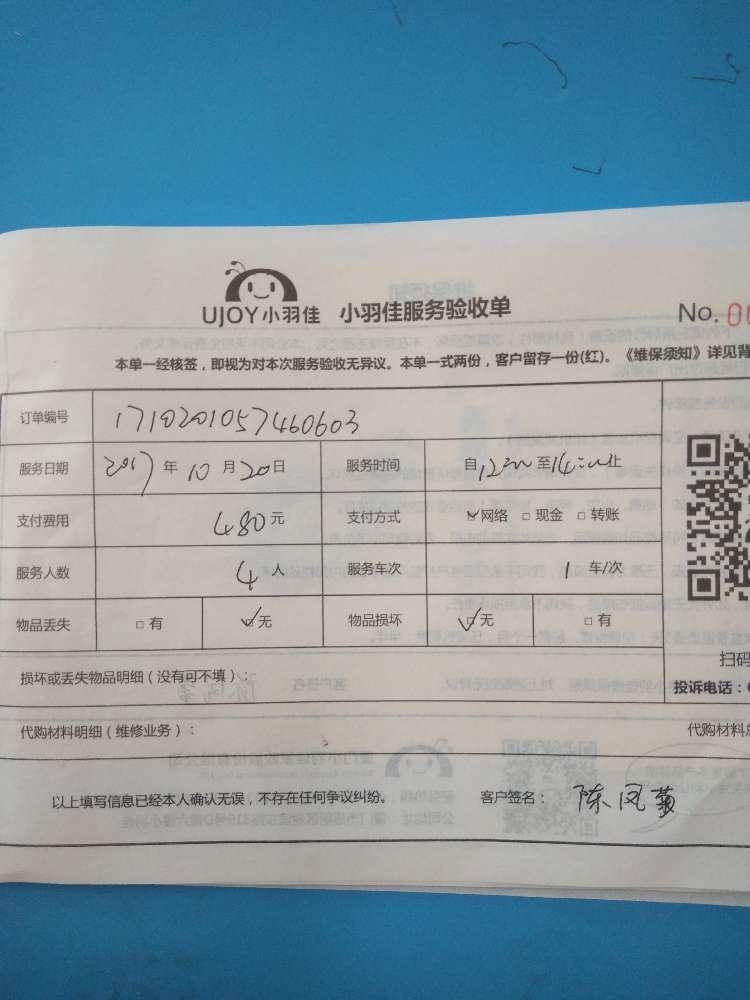 UJOY小羽佳 小羽佳服务验收单
No. 0
本单一经核签，即视为对本次服务验收无异议。本单一式两份，客户留存一份(红)。《维保须知》详见背
订单编号 1710201057460603
服务日期 2017年10月20日 服务时间 自12:00至14:00止
支付费用 480元 支付方式 ☑网络 □现金 □转账
服务人数 4人 服务车次 1车/次
物品丢失 □有 ☑无 物品损坏 ☑无 □有
损坏或丢失物品明细（没有可不填）：
扫码
投诉电话：
代购材料明细（维修业务）： 代购材料总
以上填写信息已经本人确认无误，不存在任何争议纠纷。 客户签名： 陈凤